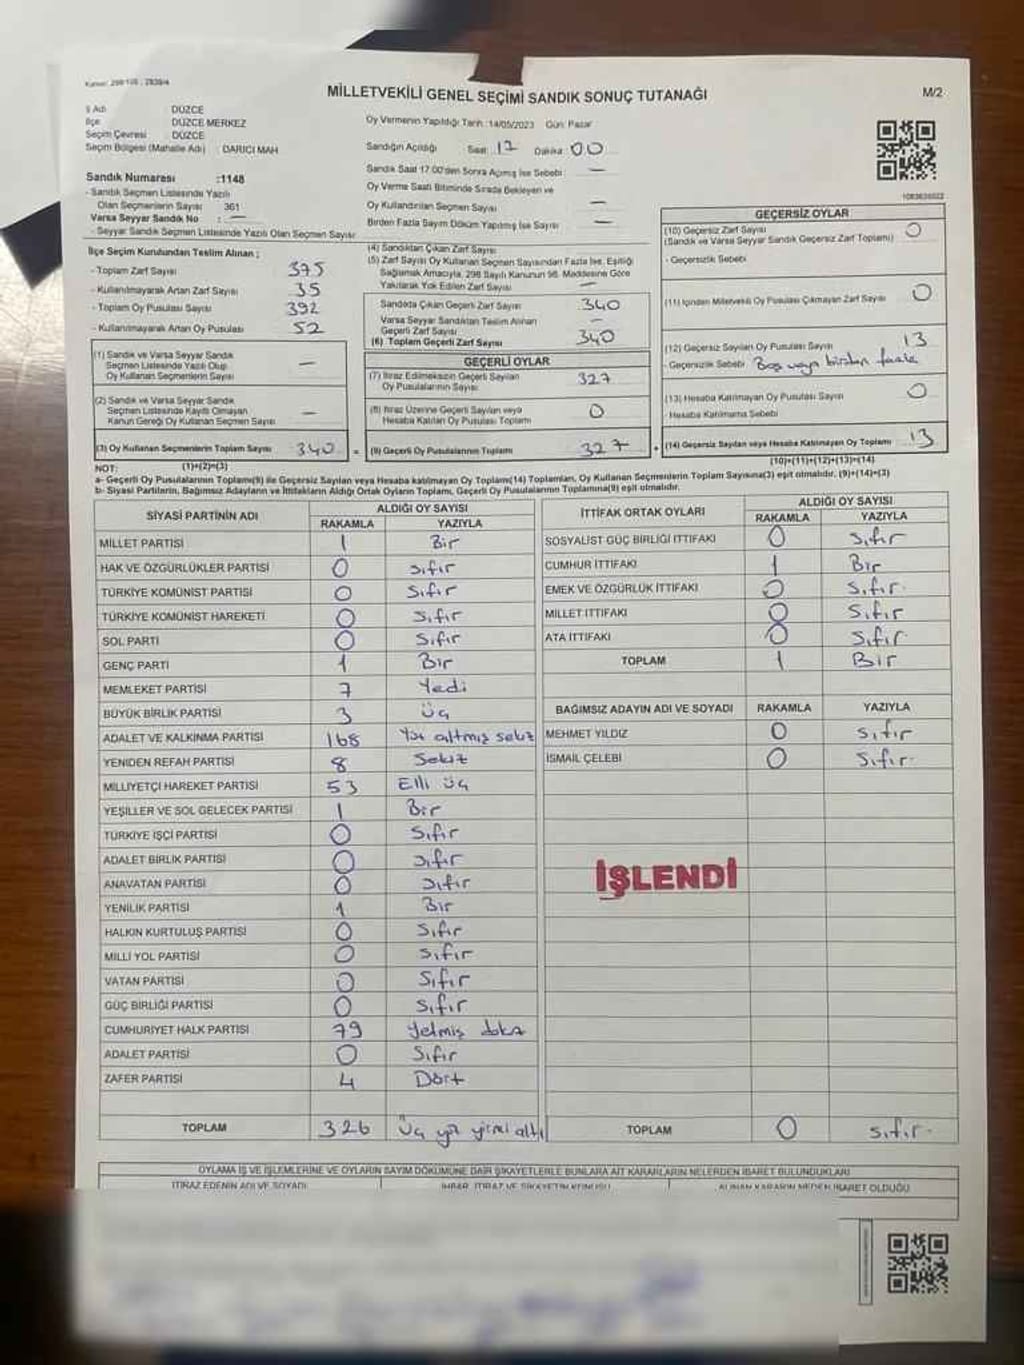 MİLLETVEKİLİ GENEL SEÇİMİ SANDIK SONUÇ TUTANAĞI
M/2
İl Adı DÜZCE
İlçe DÜZCE MERKEZ
Seçim Çevresi DÜZCE
Seçim Bölgesi (Mahalle Adı) DARICI MAH
Oy Vermenin Yapıldığı Tarih :14/05/2023 Gün: Pazar
Sandığın Açıldığı Saat: 17 Dakika: 00
Sandık Saat 17:00'den Sonra Açılmış İse Sebebi —
Oy Verme Saati Bitiminde Sırada Bekleyen ve
Oy Kullandırılan Seçmen Sayısı —
Birden Fazla Sayım Döküm Yapılmış İse Sayısı —
Sandık Numarası :1148
- Sandık Seçmen Listesinde Yazılı
Olan Seçmenlerin Sayısı 361
Varsa Seyyar Sandık No : —
- Seyyar Sandık Seçmen Listesinde Yazılı Olan Seçmen Sayısı:
İlçe Seçim Kurulundan Teslim Alınan ;
- Toplam Zarf Sayısı 375
- Kullanılmayarak Artan Zarf Sayısı 35
- Toplam Oy Pusulası Sayısı 392
- Kullanılmayarak Artan Oy Pusulası 52
(1) Sandık ve Varsa Seyyar Sandık
Seçmen Listesinde Yazılı Olup
Oy Kullanan Seçmenlerin Sayısı —
(2) Sandık ve Varsa Seyyar Sandık
Seçmen Listesinde Kayıtlı Olmayan
Kanun Gereği Oy Kullanan Seçmen Sayısı —
(3) Oy Kullanan Seçmenlerin Toplam Sayısı 340 =
(1)+(2)=(3)
(4) Sandıktan Çıkan Zarf Sayısı
(5) Zarf Sayısı Oy Kullanan Seçmen Sayısından Fazla İse, Eşitliği
Sağlamak Amacıyla, 298 Sayılı Kanunun 98. Maddesine Göre
Yakılarak Yok Edilen Zarf Sayısı —
Sandıkta Çıkan Geçerli Zarf Sayısı 340
Varsa Seyyar Sandıktan Teslim Alınan
Geçerli Zarf Sayısı —
(6) Toplam Geçerli Zarf Sayısı 340
GEÇERLİ OYLAR
(7) İtiraz Edilmeksizin Geçerli Sayılan
Oy Pusulalarının Sayısı 327
(8) İtiraz Üzerine Geçerli Sayılan veya
Hesaba Katılan Oy Pusulaları Toplamı 0
(9) Geçerli Oy Pusulalarının Toplamı 327 +
GEÇERSİZ OYLAR
(10) Geçersiz Zarf Sayısı 0
(Sandık ve Varsa Seyyar Sandık Geçersiz Zarf Toplamı)
- Geçersizlik Sebebi
(11) İçinden Milletvekili Oy Pusulası Çıkmayan Zarf Sayısı 0
(12) Geçersiz Sayılan Oy Pusulası Sayısı 13
- Geçersizlik Sebebi Boş veya birden fazla
(13) Hesaba Katılmayan Oy Pusulası Sayısı 0
- Hesaba Katılmama Sebebi
(14) Geçersiz Sayılan veya Hesaba Katılmayan Oy Toplamı 13
(10)+(11)+(12)+(13)=(14)
NOT:
a- Geçerli Oy Pusulalarının Toplamı(9) ile Geçersiz Sayılan veya Hesaba katılmayan Oy Toplam(14) Toplamları, Oy Kullanan Seçmenlerin Toplam Sayısına(3) eşit olmalıdır. (9)+(14)=(3)
b- Siyasi Partilerin, Bağımsız Adayların ve İttifakların Aldığı Ortak Oyların Toplamı, Geçerli Oy Pusulalarının Toplamına(9) eşit olmalıdır.
SİYASİ PARTİNİN ADI ALDIĞI OY SAYISI
RAKAMLA YAZIYLA
MİLLET PARTİSİ 1 Bir
HAK VE ÖZGÜRLÜKLER PARTİSİ 0 Sıfır
TÜRKİYE KOMÜNİST PARTİSİ 0 Sıfır
TÜRKİYE KOMÜNİST HAREKETİ 0 Sıfır
SOL PARTİ 0 Sıfır
GENÇ PARTİ 1 Bir
MEMLEKET PARTİSİ 7 Yedi
BÜYÜK BİRLİK PARTİSİ 3 Üç
ADALET VE KALKINMA PARTİSİ 168 Yüz altmış sekiz
YENİDEN REFAH PARTİSİ 8 Sekiz
MİLLİYETÇİ HAREKET PARTİSİ 53 Elli üç
YEŞİLLER VE SOL GELECEK PARTİSİ 1 Bir
TÜRKİYE İŞÇİ PARTİSİ 0 Sıfır
ADALET BİRLİK PARTİSİ 0 Sıfır
ANAVATAN PARTİSİ 0 Sıfır
YENİLİK PARTİSİ 1 Bir
HALKIN KURTULUŞ PARTİSİ 0 Sıfır
MİLLİ YOL PARTİSİ 0 Sıfır
VATAN PARTİSİ 0 Sıfır
GÜÇ BİRLİĞİ PARTİSİ 0 Sıfır
CUMHURİYET HALK PARTİSİ 79 Yetmiş dokuz
ADALET PARTİSİ 0 Sıfır
ZAFER PARTİSİ 4 Dört
TOPLAM 326 Üç yüz yirmi altı
İTTİFAK ORTAK OYLARI ALDIĞI OY SAYISI
RAKAMLA YAZIYLA
SOSYALİST GÜÇ BİRLİĞİ İTTİFAKI 0 Sıfır
CUMHUR İTTİFAKI 1 Bir
EMEK VE ÖZGÜRLÜK İTTİFAKI 0 Sıfır
MİLLET İTTİFAKI 0 Sıfır
ATA İTTİFAKI 0 Sıfır
TOPLAM 1 Bir
BAĞIMSIZ ADAYIN ADI VE SOYADI RAKAMLA YAZIYLA
MEHMET YILDIZ 0 Sıfır
İSMAİL ÇELEBİ 0 Sıfır
İŞLENDİ
TOPLAM 0 Sıfır
OYLAMA İŞ VE İŞLEMLERİNE VE OYLARIN SAYIM DÖKÜMÜNE DAİR ŞİKAYETLERLE BUNLARA AİT KARARLARIN NELERDEN İBARET BULUNDUKLARI
İTİRAZ EDENİN ADI VE SOYADI İHBAR, İTİRAZ VE ŞİKAYETİN KONUSU ALINAN KARARIN NEDEN İBARET OLDUĞU